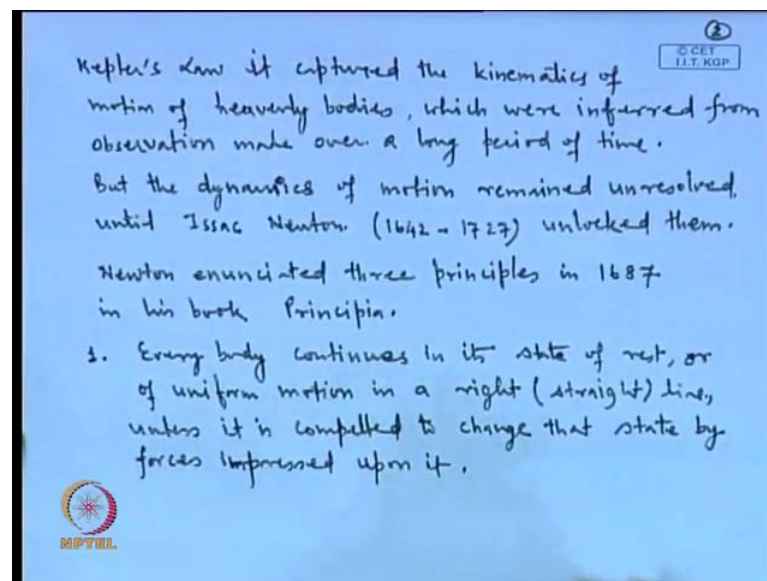 ②
© CET
I.I.T. KGP
Kepler's Law it captured the kinematics of
motion of heavenly bodies, which were inferred from
observation make over a long period of time.
But the dynamics of motion remained unresolved
until Issac Newton. (1642 - 1727) unlocked them.
Newton enunciated three principles in 1687
in his book Principia.
1. Every body continues in its state of rest, or
of uniform motion in a right (straight) line,
unless it is compelled to change that state by
forces impressed upon it.
NPTEL